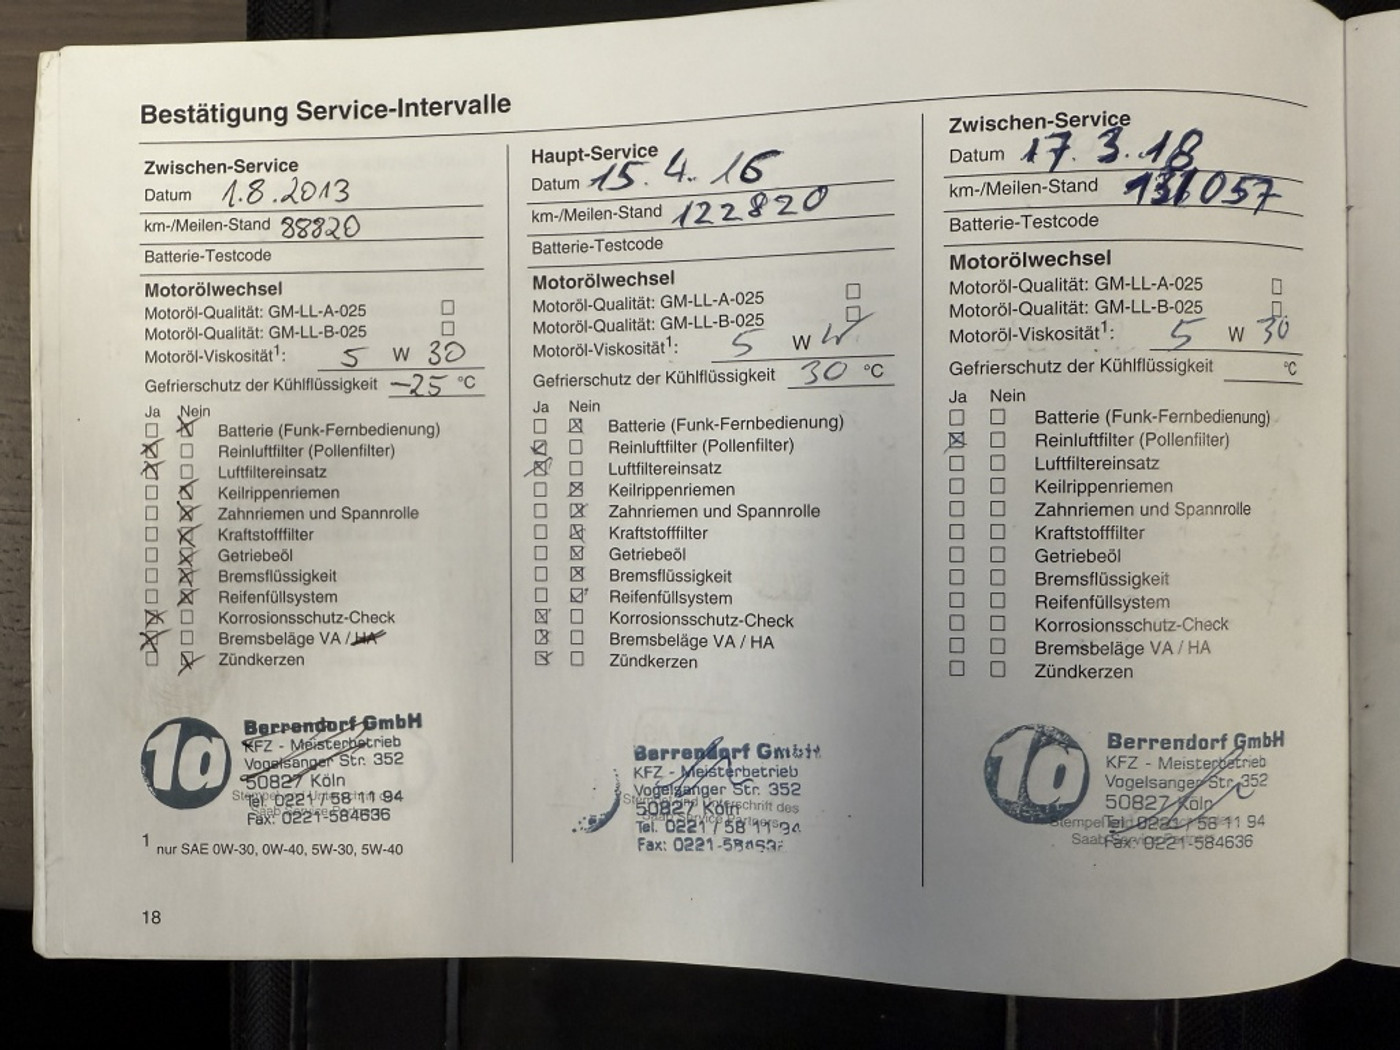 Bestätigung Service-Intervalle
Zwischen-Service
Datum 1.8.2013
km-/Meilen-Stand 88820
Batterie-Testcode
Motorölwechsel
Motoröl-Qualität: GM-LL-A-025
Motoröl-Qualität: GM-LL-B-025
Motoröl-Viskosität¹: 5 W 30
Gefrierschutz der Kühlflüssigkeit -25 °C
Ja Nein
Batterie (Funk-Fernbedienung)
Reinluftfilter (Pollenfilter)
Luftfiltereinsatz
Keilrippenriemen
Zahnriemen und Spannrolle
Kraftstofffilter
Getriebeöl
Bremsflüssigkeit
Reifenfüllsystem
Korrosionsschutz-Check
Bremsbeläge VA / HA
Zündkerzen
1a
Berrendorf GmbH
KFZ - Meisterbetrieb
Vogelsanger Str. 352
50827 Köln
Tel. 0221 / 58 11 94
Fax: 0221-584636
1 nur SAE 0W-30, 0W-40, 5W-30, 5W-40
18
Haupt-Service
Datum 15.4.16
km-/Meilen-Stand 122820
Batterie-Testcode
Motorölwechsel
Motoröl-Qualität: GM-LL-A-025
Motoröl-Qualität: GM-LL-B-025
Motoröl-Viskosität¹: 5 W
Gefrierschutz der Kühlflüssigkeit 30 °C
Ja Nein
Batterie (Funk-Fernbedienung)
Reinluftfilter (Pollenfilter)
Luftfiltereinsatz
Keilrippenriemen
Zahnriemen und Spannrolle
Kraftstofffilter
Getriebeöl
Bremsflüssigkeit
Reifenfüllsystem
Korrosionsschutz-Check
Bremsbeläge VA / HA
Zündkerzen
Berrendorf GmbH
KFZ - Meisterbetrieb
Vogelsanger Str. 352
Stempel und Unterschrift des
50827 Köln
Saab Service Partners
Tel. 0221 / 58 11 94
Fax: 0221-584636
Zwischen-Service
Datum 17.3.18
km-/Meilen-Stand 131057
Batterie-Testcode
Motorölwechsel
Motoröl-Qualität: GM-LL-A-025
Motoröl-Qualität: GM-LL-B-025
Motoröl-Viskosität¹: 5 W 30
Gefrierschutz der Kühlflüssigkeit °C
Ja Nein
Batterie (Funk-Fernbedienung)
Reinluftfilter (Pollenfilter)
Luftfiltereinsatz
Keilrippenriemen
Zahnriemen und Spannrolle
Kraftstofffilter
Getriebeöl
Bremsflüssigkeit
Reifenfüllsystem
Korrosionsschutz-Check
Bremsbeläge VA / HA
Zündkerzen
1a
Berrendorf GmbH
KFZ - Meisterbetrieb
Vogelsanger Str. 352
50827 Köln
Tel. 0221 / 58 11 94
Fax: 0221-584636